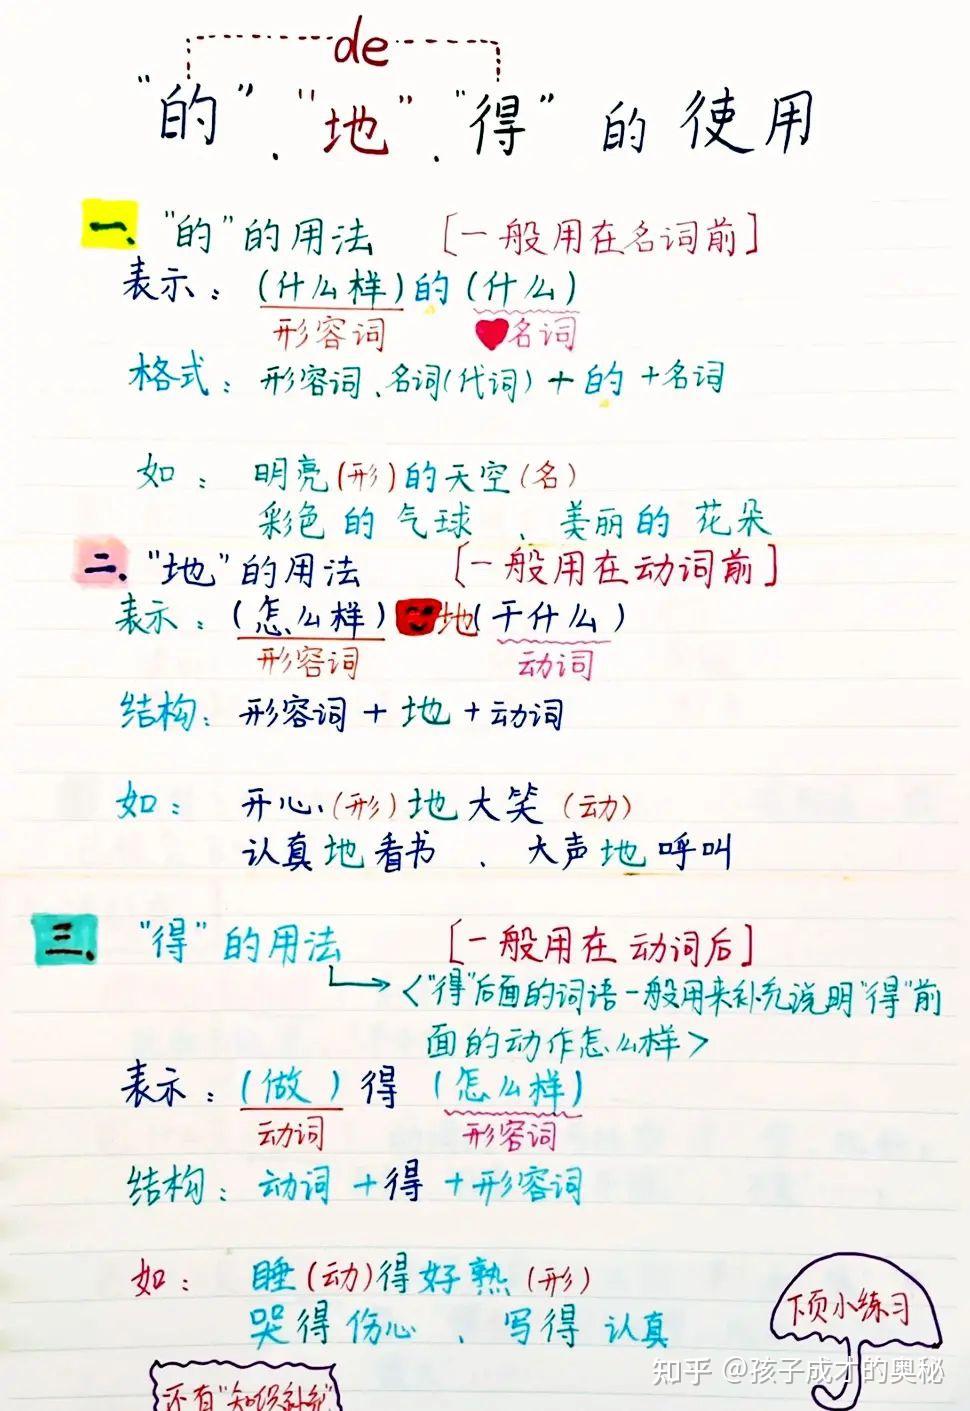 de
“的”、“地”、“得”的使用
一、“的”的用法 [一般用在名词前]
表示：(什么样)的(什么)
形容词 名词
格式：形容词、名词(代词)+的+名词
如：明亮(形)的天空(名)
彩色的气球、美丽的花朵
二、“地”的用法 [一般用在动词前]
表示：(怎么样)地(干什么)
形容词 动词
结构：形容词+地+动词
如：开心(形)地大笑(动)
认真地看书、大声地呼叫
三、“得”的用法 [一般用在动词后]
<“得”后面的词语一般用来补充说明“得”前
面的动作怎么样>
表示：(做)得(怎么样)
动词 形容词
结构：动词+得+形容词
如：睡(动)得好熟(形)
哭得伤心、写得认真
下页小练习
还有“知识补充”
知乎 @孩子成才的奥秘